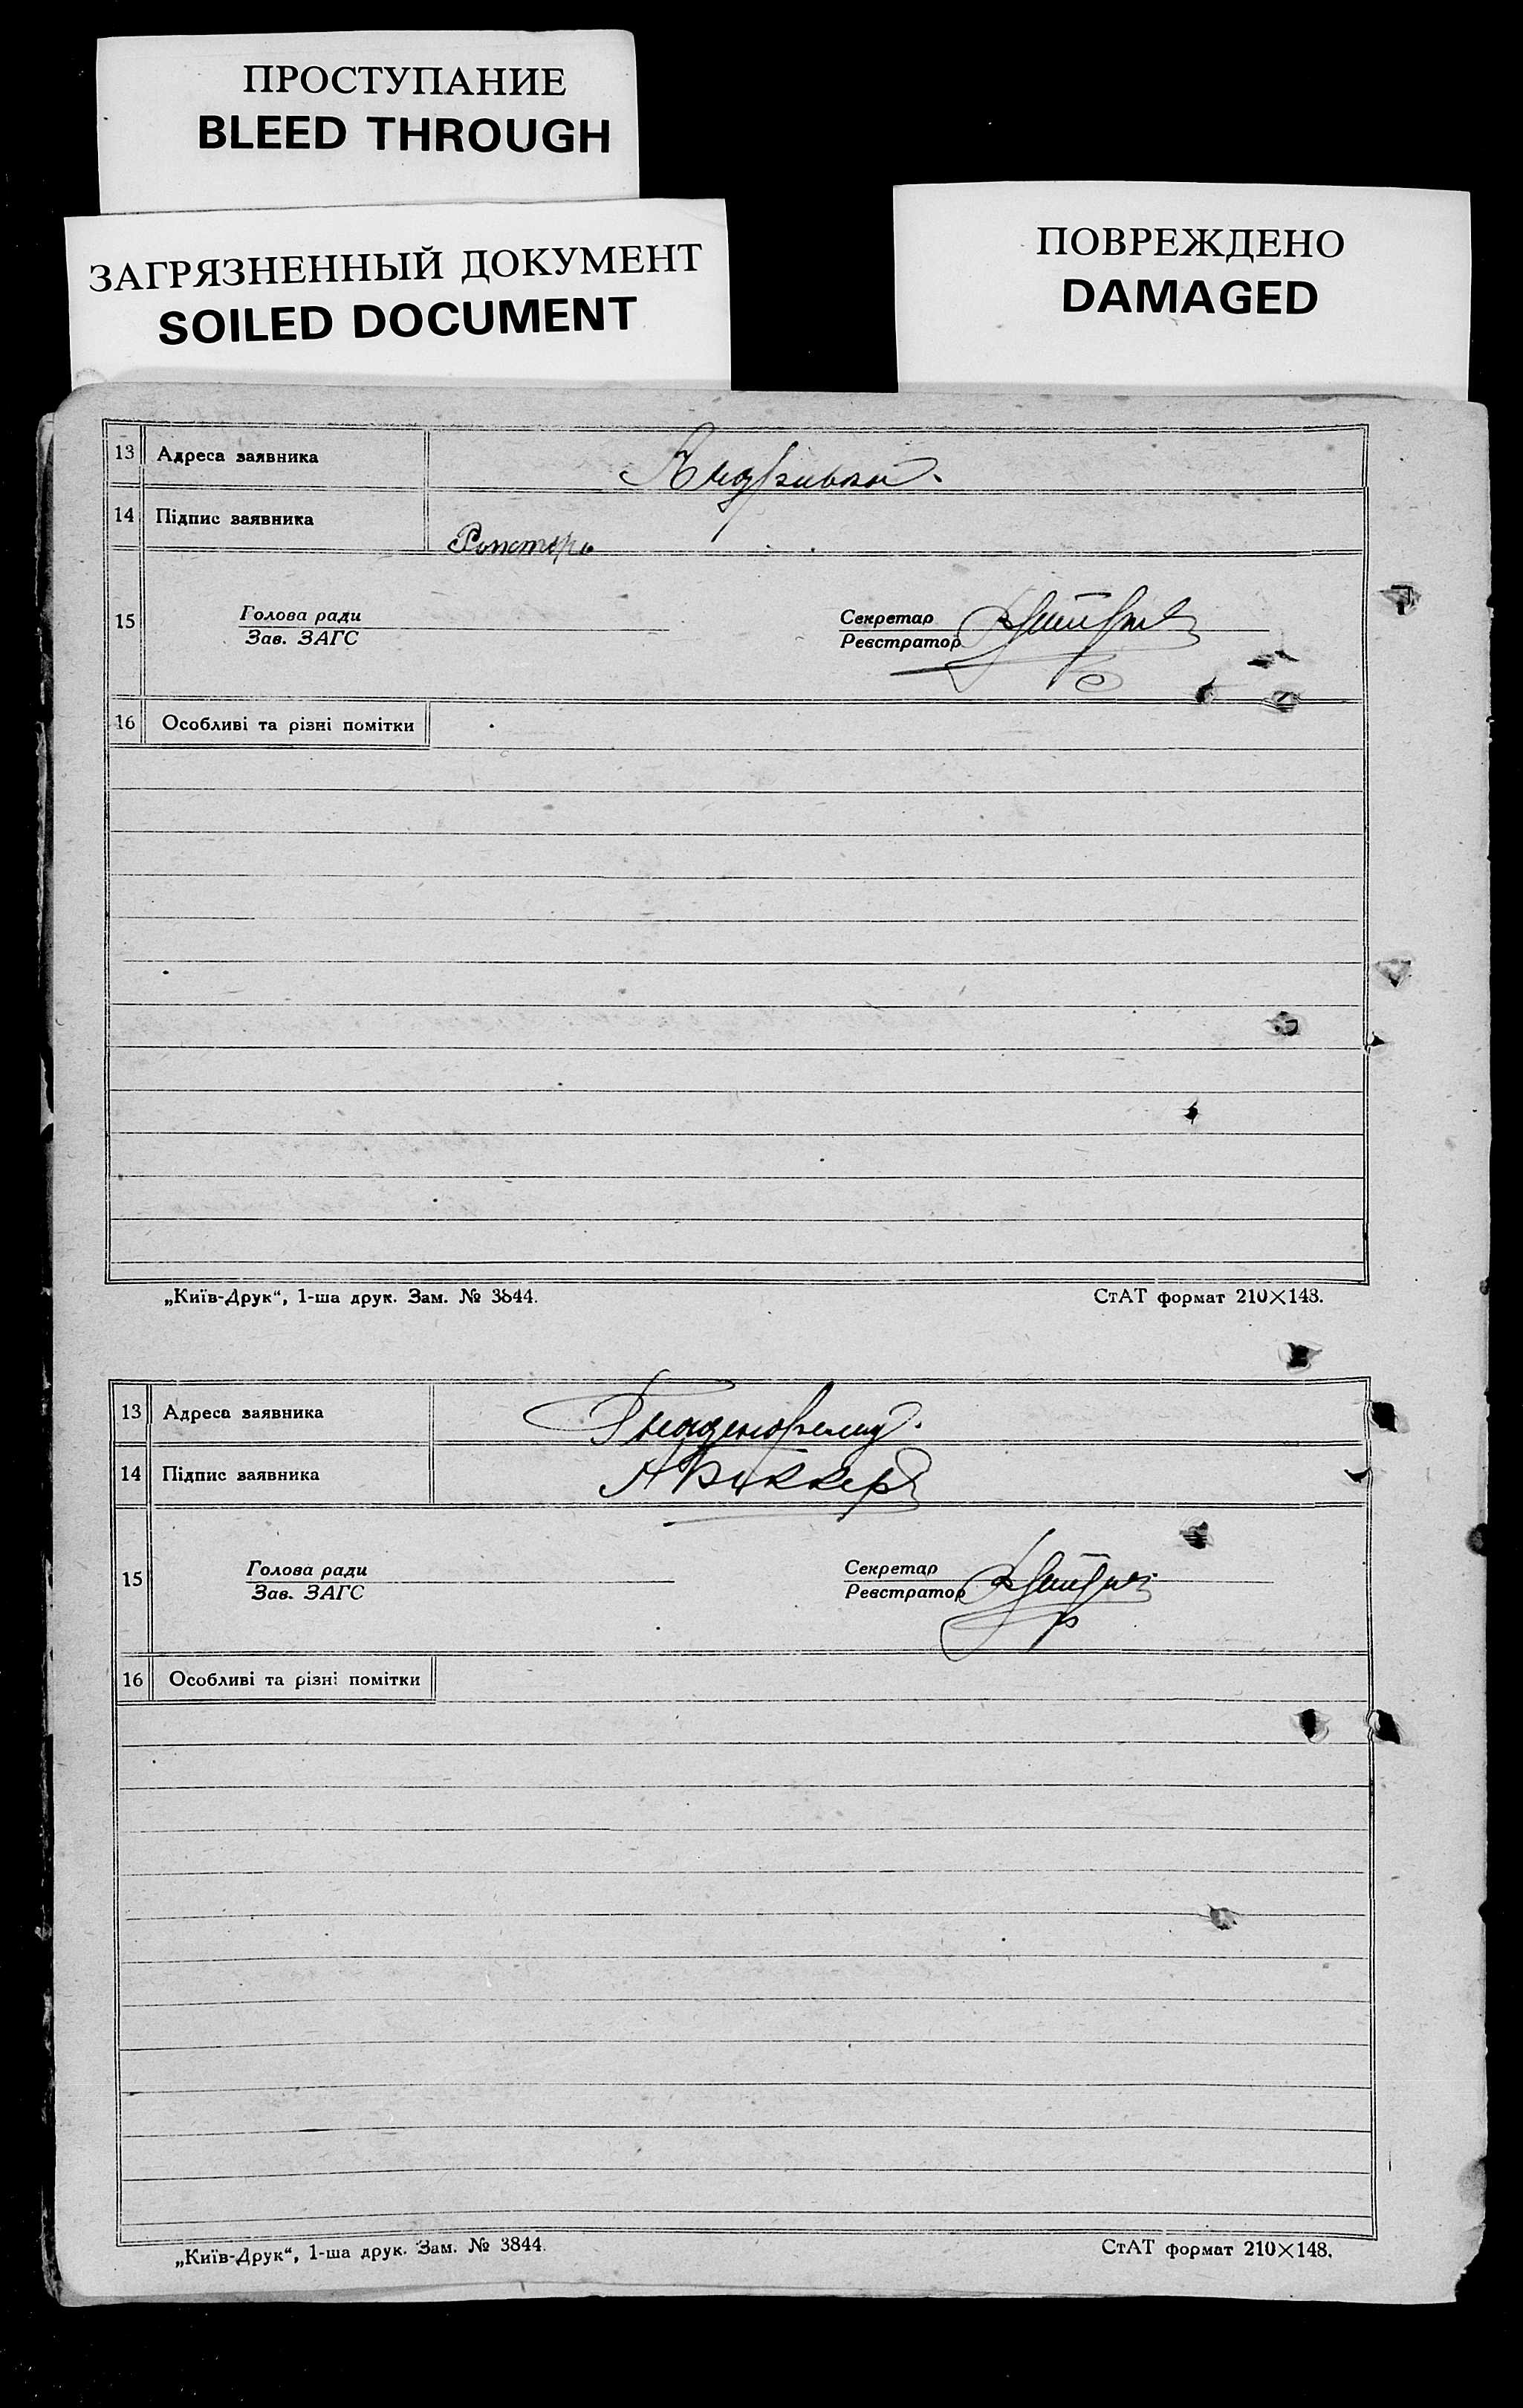 ПРОСТУПАНИЕ
BLEED THROUGH
ЗАГРЯЗНЕННЫЙ ДОКУМЕНТ
SOILED DOCUMENT
ПОВРЕЖДЕНО
DAMAGED
13 Адреса заявника
14 Підпис заявника
15 Голова ради
Зав. ЗАГС
Секретар
Реєстратор
16 Особливі та різні помітки
„Київ-Друк“, 1-ша друк. Зам. № 3844. СтАТ формат 210×148.
13 Адреса заявника
14 Підпис заявника А Беккер
15 Голова ради
Зав. ЗАГС
Секретар
Реєстратор
16 Особливі та різні помітки
„Київ-Друк“, 1-ша друк. Зам. № 3844. СтАТ формат 210×148.